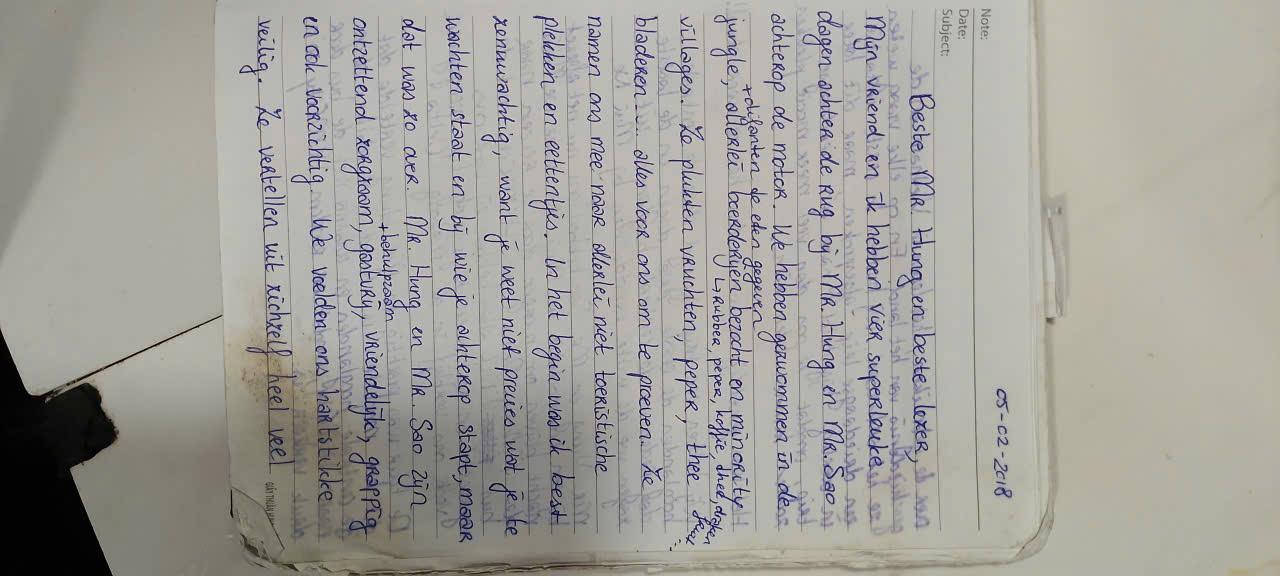 Note:
Date:
Subject:
05-02-2018
Beste Mr. Hung en beste lezer,
Mijn vriend en ik hebben vier superleuke
dagen achter de rug bij Mr. Hung en Mr. Sao
achterop de motor. We hebben gezwommen in de
jungle, allerlei boerderijen bezocht en minority
+olifanten de eten gegeven
↳rubber, peper, koffie, thee,
villages. Ze plukten vruchten, peper, thee
bladeren ... alles voor ons om te proeven. Ze
namen ons mee naar allerlei niet toeristische
plekken en eettentjes. In het begin was ik best
zenuwachtig, want je weet niet precies wat je te
wachten staat en bij wie je achterop stapt, maar
dat was zo over. Mr. Hung en Mr. Sao zijn
+behulpzaam
ontzettend zorgzaam, gastvrij, vriendelijk, grappig
en ook voorzichtig. We voelden ons hartstikke
veilig. Ze vertellen uit zichzelf heel veel